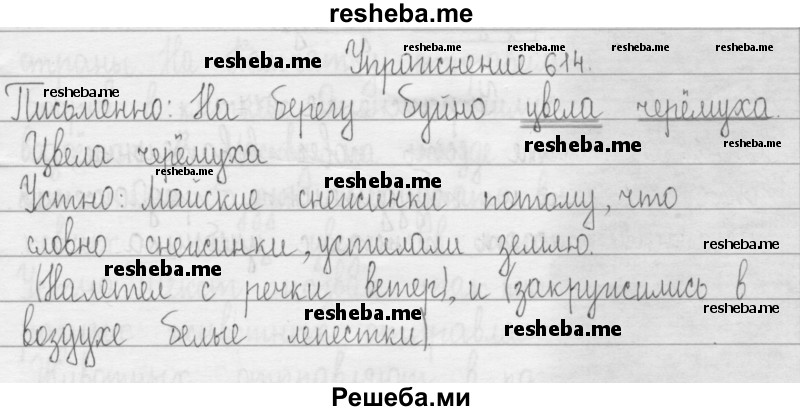 resheba.me
Упражнение 614.
resheba.me resheba.me resheba.me resheba.me resheba.me
Письменно: На берегу буйно цвела черёмуха.
resheba.me resheba.me resheba.me
Цвела черёмуха
resheba.me resheba.me
Устно: Майские снежинки потому, что
словно снежинки, устилали землю.
resheba.me resheba.me
(Налетел с речки ветер), и (закружились в
resheba.me resheba.me resheba.me
воздухе белые лепестки)
Решеба.ми